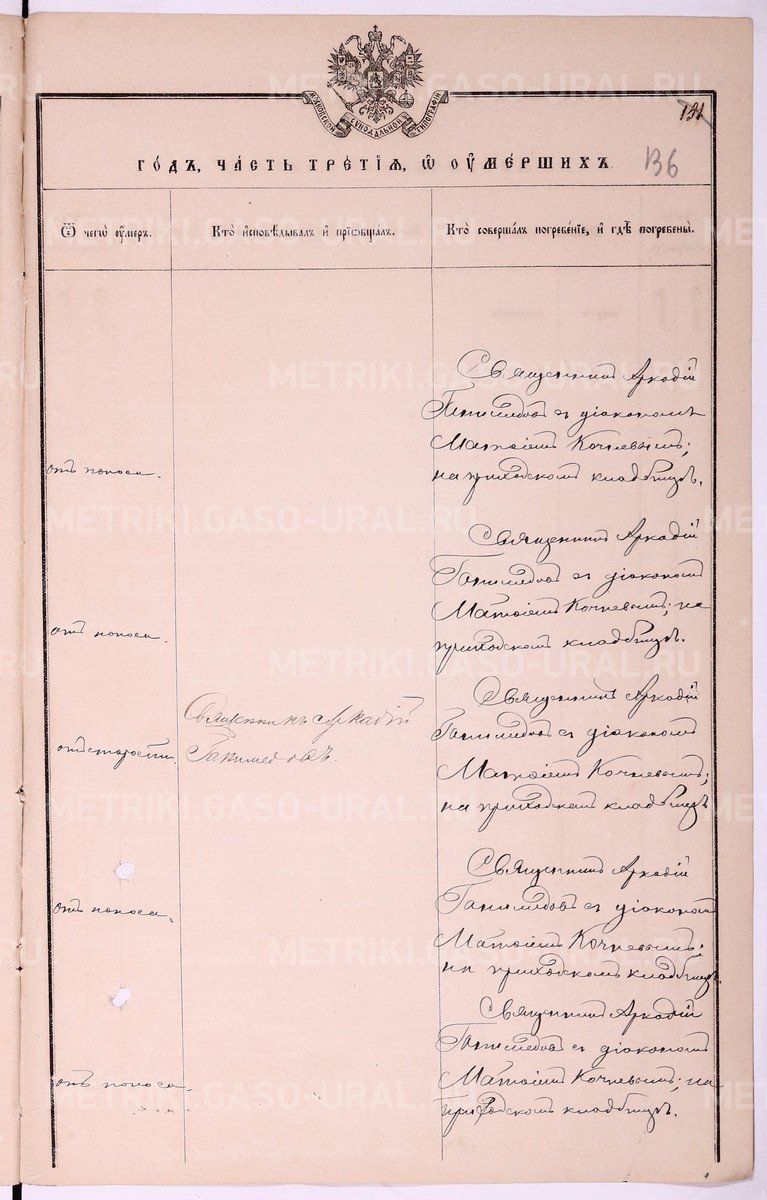 МОСКОВСКОЙ СѴНОДАЛЬНОЙ ТИПОГРАФІИ
136
ГОДЪ, ЧАСТЬ ТРЕТІЯ, Ѽ ОУМЕРШИХЪ
Ѿ чегѡ оумеръ.
Кто исповѣдывалъ и пріѡбщалъ.
Кто совершалъ погребеніе, и гдѣ погребены.
отъ поноса.
Священникъ Аркадій
Ганимедовъ съ діакономъ
Матѳіемъ Кочневымъ;
на приходскомъ кладбищѣ.
отъ поноса.
Священникъ Аркадій
Ганимедовъ съ діакономъ
Матѳіемъ Кочневымъ; на
приходскомъ кладбищѣ.
отъ старости.
Священникъ Аркадій
Ганимедовъ.
Священникъ Аркадій
Ганимедовъ съ діакономъ
Матѳіемъ Кочневымъ;
на приходскомъ кладбищѣ
отъ поноса.
Священникъ Аркадій
Ганимедовъ съ діакономъ
Матѳіемъ Кочневымъ;
на приходскомъ кладбищѣ.
отъ поноса.
Священникъ Аркадій
Ганимедовъ съ діакономъ
Матѳіемъ Кочневымъ; на
приходскомъ кладбищѣ.
METRIKI.GASO-URAL.RU